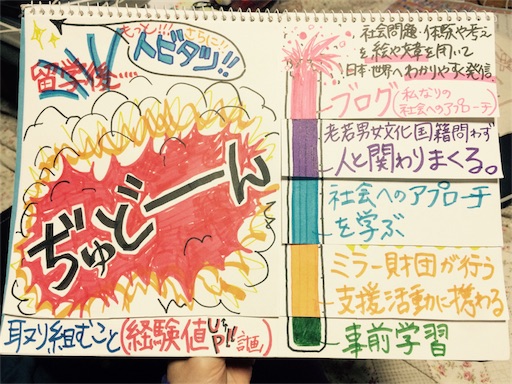 もっと!!さらに!!
人ビタツ!!
留学後....
ぢゅどーん
取り組むこと(経験値UP!!計画)
社会問題・体験や考え
を絵や文章を用いて
日本・世界へわかりやすく発信。
ブログ(私なりの
社会へのアプローチ)
老若男女文化国籍問わず
人と関わりまくる。
社会へのアプローチ
を学ぶ
ミラー財団が行う
支援活動に携わる
事前学習